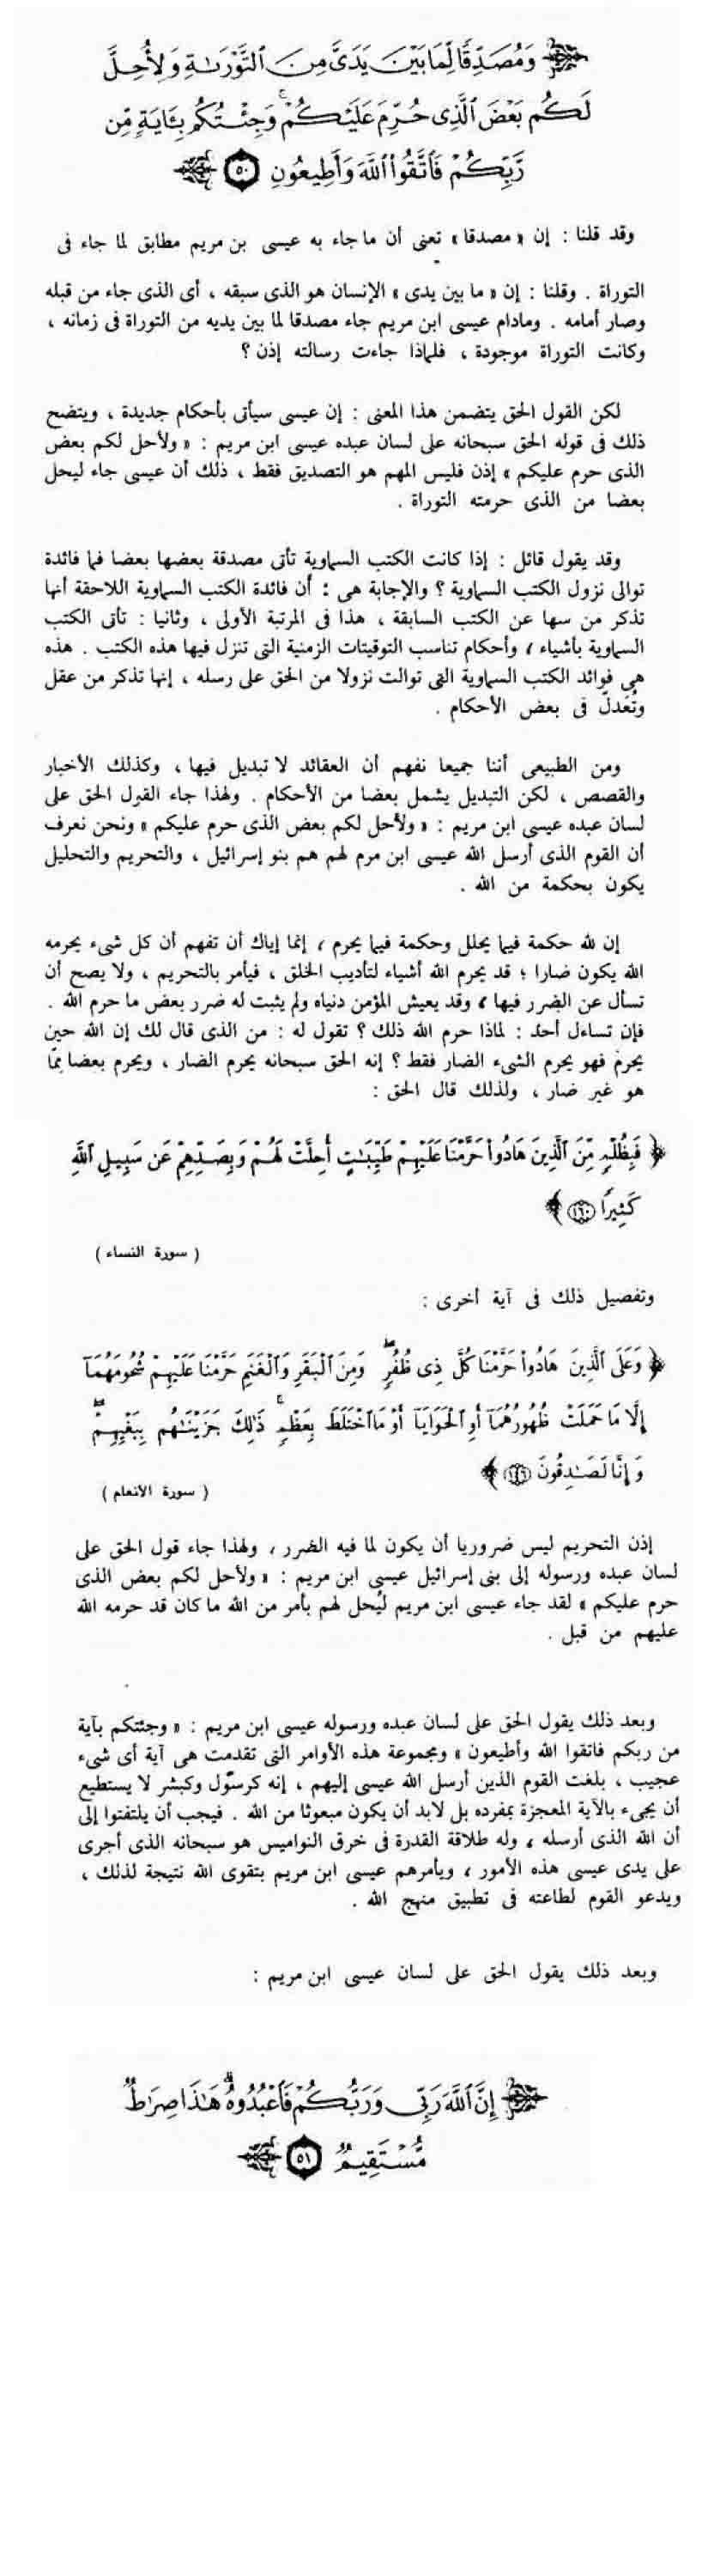 وَمُصَدِّقًا لِّمَا بَيْنَ يَدَىَّ مِنَ ٱلتَّوْرَىٰةِ وَلِأُحِلَّ
لَكُم بَعْضَ ٱلَّذِى حُرِّمَ عَلَيْكُمْ ۚ وَجِئْتُكُم بِـَٔايَةٍ مِّن
رَّبِّكُمْ فَٱتَّقُوا۟ ٱللَّهَ وَأَطِيعُونِ ٥٠
وقد قلنا : إن « مصدقا » تعنى أن ما جاء به عيسى بن مريم مطابق لما جاء فى
التوراة . وقلنا : إن « ما بين يدى » الإنسان هو الذى سبقه ، أى الذى جاء من قبله
وصار أمامه . ومادام عيسى ابن مريم جاء مصدقا لما بين يديه من التوراة فى زمانه ،
وكانت التوراة موجودة ، فلماذا جاءت رسالته إذن ؟
لكن القول الحق يتضمن هذا المعنى : إن عيسى سيأتى بأحكام جديدة ، ويتضح
ذلك فى قوله الحق سبحانه على لسان عبده عيسى ابن مريم : « ولأحل لكم بعض
الذى حرم عليكم » إذن فليس المهم هو التصديق فقط ، ذلك أن عيسى جاء ليحل
بعضا من الذى حرمته التوراة .
وقد يقول قائل : إذا كانت الكتب السماوية تأتى مصدقة بعضها بعضا فما فائدة
توالى نزول الكتب السماوية ؟ والإجابة هى : أن فائدة الكتب السماوية اللاحقة أنها
تذكر من سها عن الكتب السابقة ، هذا فى المرتبة الأولى ، وثانيا : تأتى الكتب
السماوية بأشياء ، وأحكام تناسب التوقيتات الزمنية التى تنزل فيها هذه الكتب . هذه
هى فوائد الكتب السماوية التى توالت نزولا من الحق على رسله ، إنها تذكر من عقل
وتُعَدلّ فى بعض الأحكام .
ومن الطبيعى أننا جميعا نفهم أن العقائد لا تبديل فيها ، وكذلك الأخبار
والقصص ، لكن التبديل يشمل بعضا من الأحكام . ولهذا جاء القول الحق على
لسان عبده عيسى ابن مريم : « ولأحل لكم بعض الذى حرم عليكم » ونحن نعرف
أن القوم الذى أرسل الله عيسى ابن مرم لهم هم بنو إسرائيل ، والتحريم والتحليل
يكون بحكمة من الله .
إن لله حكمة فيما يحلل وحكمة فيما يحرم ، إنما إياك أن تفهم أن كل شىء يحرمه
الله يكون ضارا ؛ قد يحرم الله أشياء لتأديب الخلق ، فيأمر بالتحريم ، ولا يصح أن
تسأل عن الضرر فيها ، وقد يعيش المؤمن دنياه ولم يثبت له ضرر بعض ما حرم الله .
فإن تساءل أحد : لماذا حرم الله ذلك ؟ تقول له : من الذى قال لك إن الله حين
يحرم فهو يحرم الشىء الضار فقط ؟ إنه الحق سبحانه يحرم الضار ، ويحرم بعضا مِمّا
هو غير ضار ، ولذلك قال الحق :
﴿ فَبِظُلْمٍ مِّنَ ٱلَّذِينَ هَادُوا۟ حَرَّمْنَا عَلَيْهِمْ طَيِّبَـٰتٍ أُحِلَّتْ لَهُمْ وَبِصَدِّهِمْ عَن سَبِيلِ ٱللَّهِ
كَثِيرًا ١٦٠ ﴾
( سورة النساء )
وتفصيل ذلك فى آية أخرى :
﴿ وَعَلَى ٱلَّذِينَ هَادُوا۟ حَرَّمْنَا كُلَّ ذِى ظُفُرٍ ۖ وَمِنَ ٱلْبَقَرِ وَٱلْغَنَمِ حَرَّمْنَا عَلَيْهِمْ شُحُومَهُمَآ
إِلَّا مَا حَمَلَتْ ظُهُورُهُمَآ أَوِ ٱلْحَوَايَآ أَوْ مَا ٱخْتَلَطَ بِعَظْمٍ ۚ ذَٰلِكَ جَزَيْنَـٰهُم بِبَغْيِهِمْ ۖ
وَإِنَّا لَصَـٰدِقُونَ ١٤٦ ﴾
( سورة الأنعام )
إذن التحريم ليس ضروريا أن يكون لما فيه الضرر ، ولهذا جاء قول الحق على
لسان عبده ورسوله إلى بنى إسرائيل عيسى ابن مريم : « ولأحل لكم بعض الذى
حرم عليكم » لقد جاء عيسى ابن مريم ليُحل لهم بأمر من الله ما كان قد حرمه الله
عليهم من قبل .
وبعد ذلك يقول الحق على لسان عبده ورسوله عيسى ابن مريم : « وجئتكم بآية
من ربكم فاتقوا الله وأطيعون » ومجموعة هذه الأوامر التى تقدمت هى آية أى شىء
عجيب ، بلغت القوم الذين أرسل الله عيسى إليهم ، إنه كرسّول وكبشر لا يستطيع
أن يجىء بالآية المعجزة بمفرده بل لابد أن يكون مبعوثا من الله . فيجب أن يلتفتوا إلى
أن الله الذى أرسله ، وله طلاقة القدرة فى خرق النواميس هو سبحانه الذى أجرى
على يدى عيسى هذه الأمور ، ويأمرهم عيسى ابن مريم بتقوى الله نتيجة لذلك ،
ويدعو القوم لطاعته فى تطبيق منهج الله .
وبعد ذلك يقول الحق على لسان عيسى ابن مريم :
إِنَّ ٱللَّهَ رَبِّى وَرَبُّكُمْ فَٱعْبُدُوهُ ۗ هَـٰذَا صِرَٰطٌ
مُّسْتَقِيمٌ ٥١